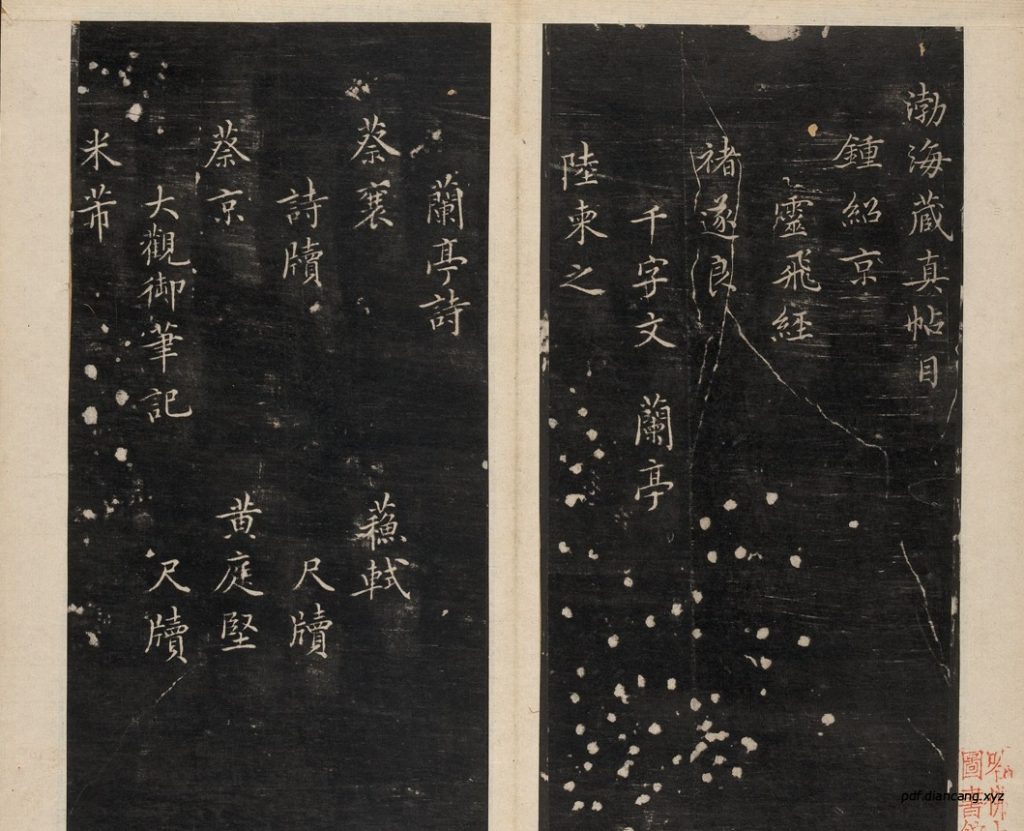 渤海藏真帖目
鍾紹京
靈飛經
褚遂良
千字文 蘭亭
陸柬之
蘭亭詩
蔡襄 蘇軾
詩牘 尺牘
蔡京 黄庭堅
大觀御筆記 尺牘
米芾
圖書
pdf.diancang.xyz